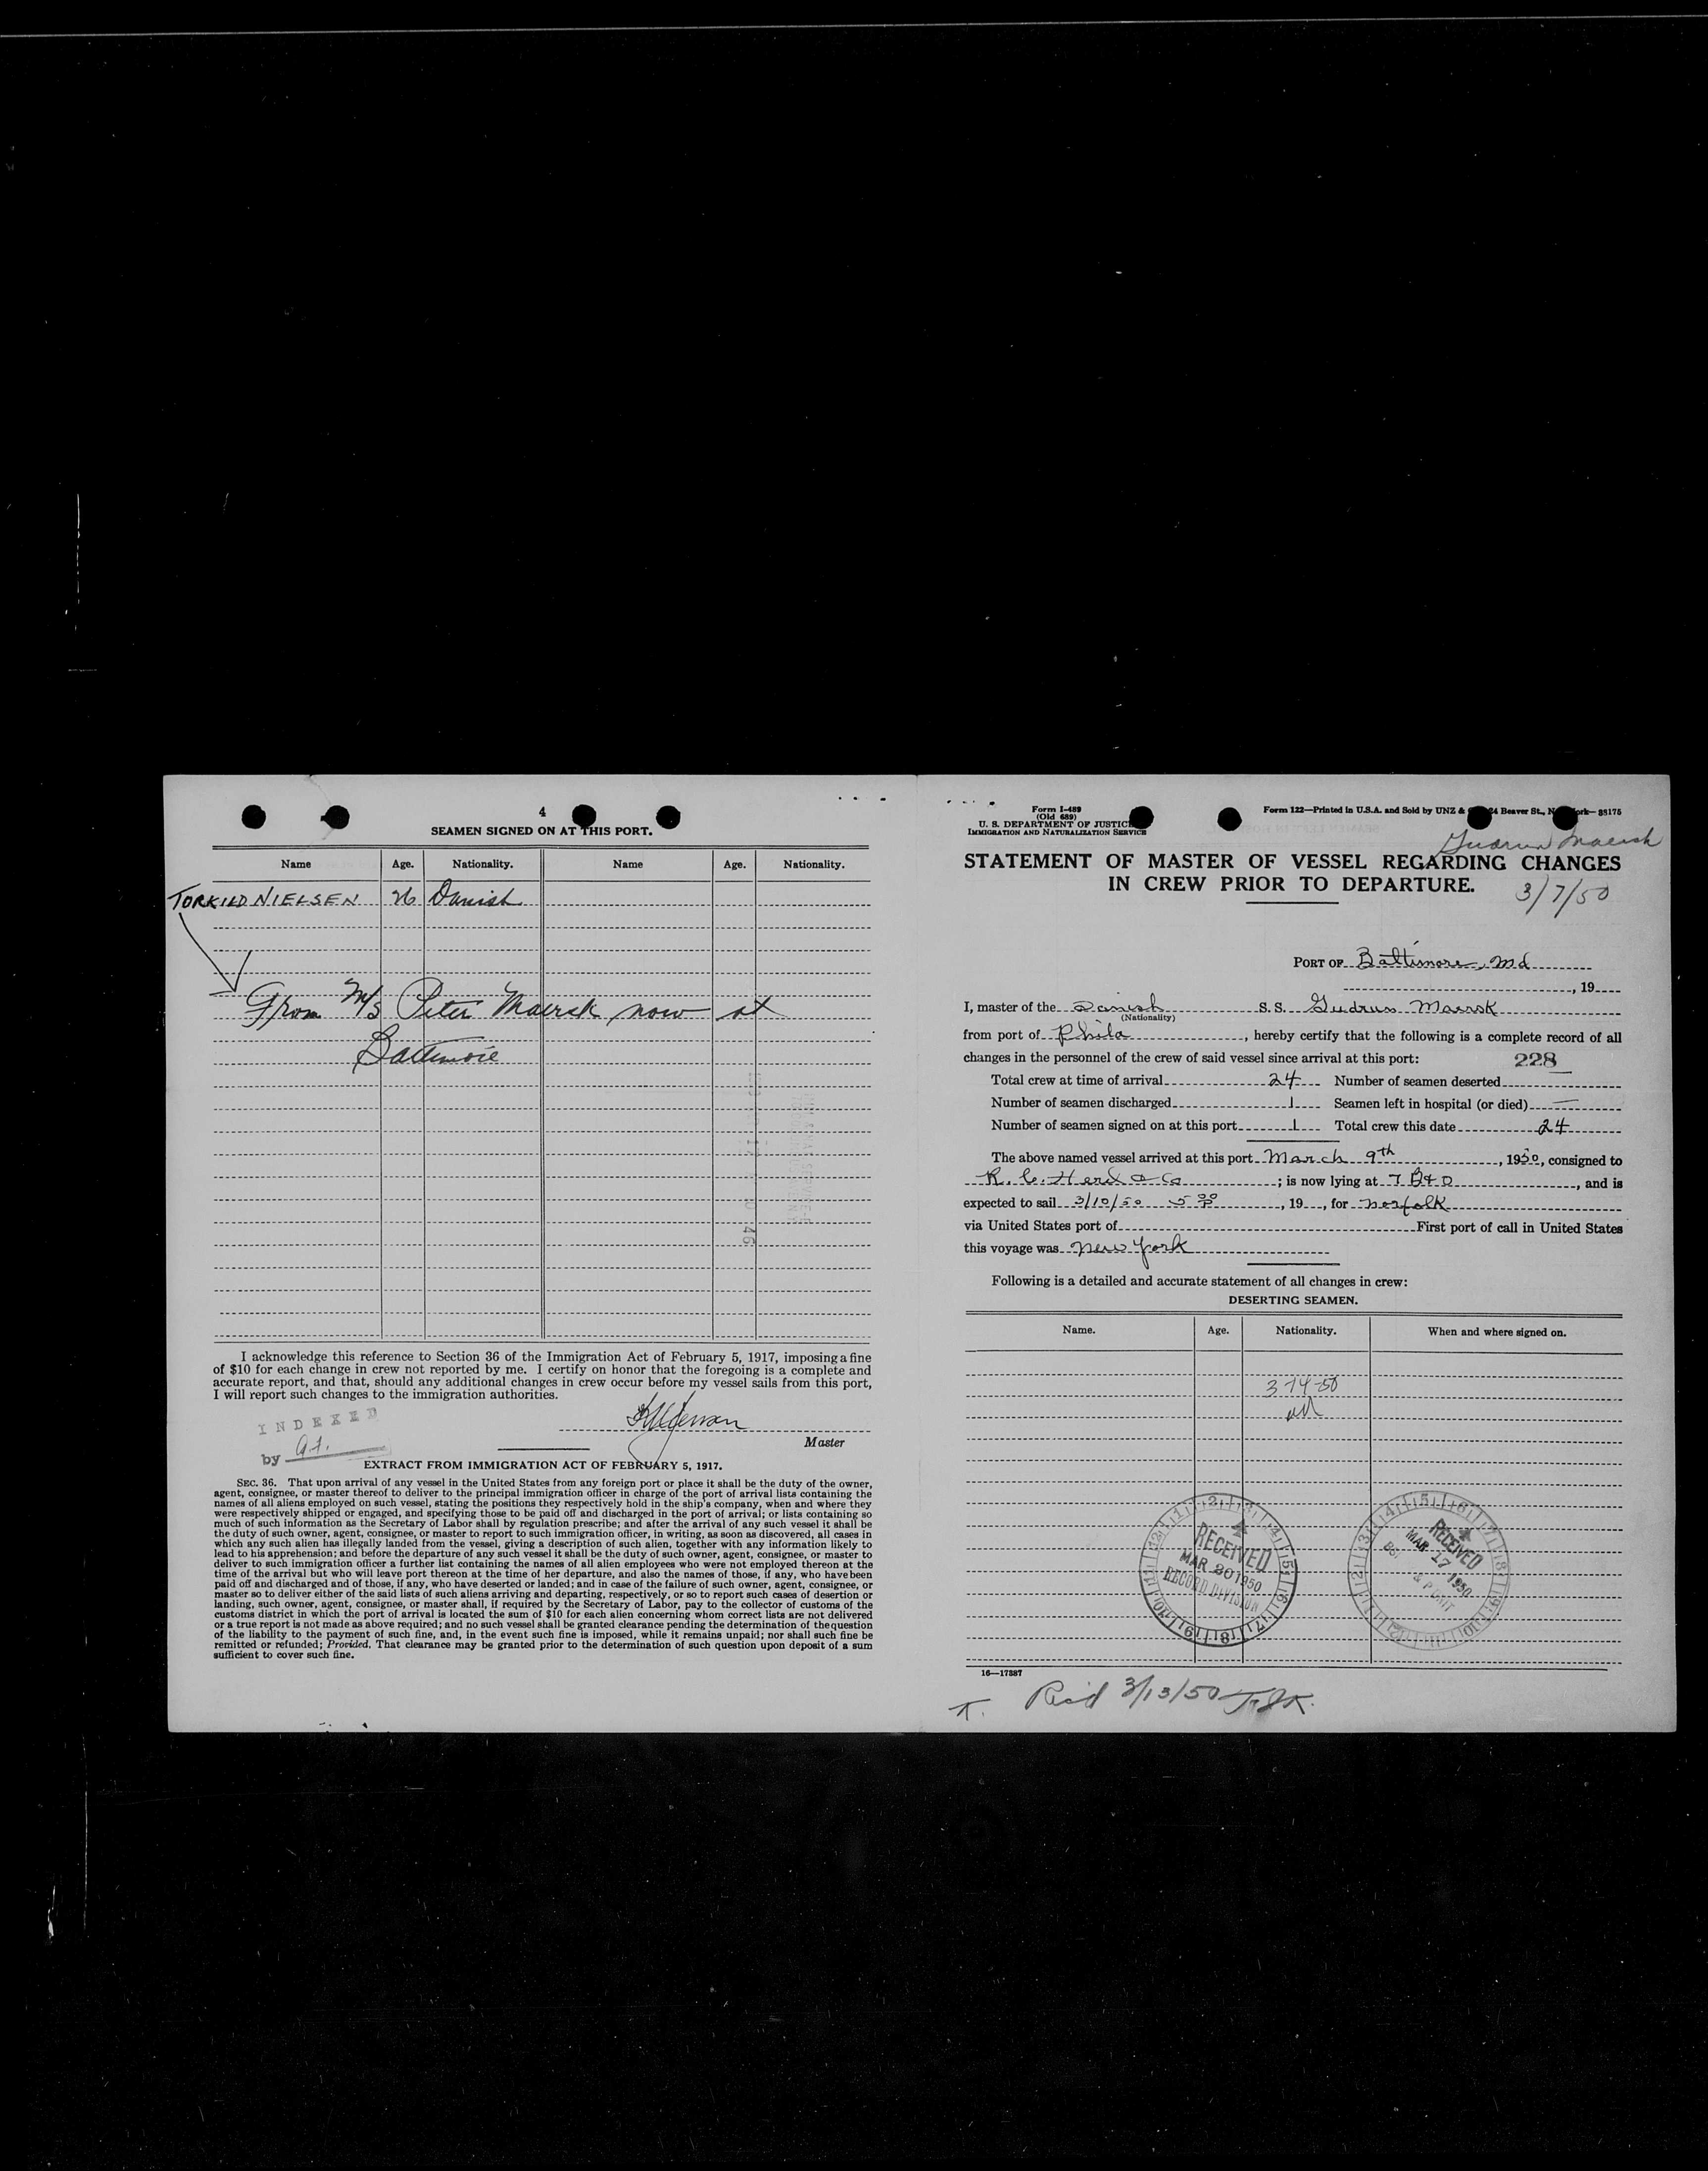 4
SEAMEN SIGNED ON AT THIS PORT.
Name Age. Nationality. Name Age. Nationality.
TORKILD NIELSEN 26 Danish
From M/S Peter Maersk now at
Baltimore
I acknowledge this reference to Section 36 of the Immigration Act of February 5, 1917, imposing a fine
of $10 for each change in crew not reported by me. I certify on honor that the foregoing is a complete and
accurate report, and that, should any additional changes in crew occur before my vessel sails from this port,
I will report such changes to the immigration authorities.
INDEXED
by
Master
EXTRACT FROM IMMIGRATION ACT OF FEBRUARY 5, 1917.
SEC. 36. That upon arrival of any vessel in the United States from any foreign port or place it shall be the duty of the owner,
agent, consignee, or master thereof to deliver to the principal immigration officer in charge of the port of arrival lists containing the
names of all aliens employed on such vessel, stating the positions they respectively hold in the ship's company, when and where they
were respectively shipped or engaged, and specifying those to be paid off and discharged in the port of arrival; or lists containing so
much of such information as the Secretary of Labor shall by regulation prescribe; and after the arrival of any such vessel it shall be
the duty of such owner, agent, consignee, or master to report to such immigration officer, in writing, as soon as discovered, all cases in
which any such alien has illegally landed from the vessel, giving a description of such alien, together with any information likely to
lead to his apprehension; and before the departure of any such vessel it shall be the duty of such owner, agent, consignee, or master to
deliver to such immigration officer a further list containing the names of all alien employees who were not employed thereon at the
time of the arrival but who will leave port thereon at the time of her departure, and also the names of those, if any, who have been
paid off and discharged and of those, if any, who have deserted or landed; and in case of the failure of such owner, agent, consignee, or
master so to deliver either of the said lists of such aliens arriving and departing, respectively, or so to report such cases of desertion or
landing, such owner, agent, consignee, or master shall, if required by the Secretary of Labor, pay to the collector of customs of the
customs district in which the port of arrival is located the sum of $10 for each alien concerning whom correct lists are not delivered
or a true report is not made as above required; and no such vessel shall be granted clearance pending the determination of the question
of the liability to the payment of such fine, and, in the event such fine is imposed, while it remains unpaid; nor shall such fine be
remitted or refunded; Provided, That clearance may be granted prior to the determination of such question upon deposit of a sum
sufficient to cover such fine.
Form I-489
(Old 689)
U. S. DEPARTMENT OF JUSTICE
IMMIGRATION AND NATURALIZATION SERVICE
Form 122—Printed in U.S.A. and Sold by UNZ & 24 Beaver St., N ork—88175
Gudrun Maersk
STATEMENT OF MASTER OF VESSEL REGARDING CHANGES
IN CREW PRIOR TO DEPARTURE.
3/7/50
PORT OF Baltimore, Md
, 19
I, master of the Danish S. S. Gudrun Maersk
(Nationality)
from port of Phila , hereby certify that the following is a complete record of all
changes in the personnel of the crew of said vessel since arrival at this port: 228
Total crew at time of arrival 24 Number of seamen deserted
Number of seamen discharged 1 Seamen left in hospital (or died) —
Number of seamen signed on at this port 1 Total crew this date 24
The above named vessel arrived at this port March 9th , 1950, consigned to
R. C. Herd & Co ; is now lying at 7 B&O , and is
expected to sail 3/10/50 5 00 P , 19 , for Norfolk
via United States port of First port of call in United States
this voyage was New York
Following is a detailed and accurate statement of all changes in crew:
DESERTING SEAMEN.
Name. Age. Nationality. When and where signed on.
3-14-50
RECEIVED
MAR 20 1950
RECORD DIVISION
RECEIVED
MAR 17 1950
16—17887
T. Rec'd 3/13/50